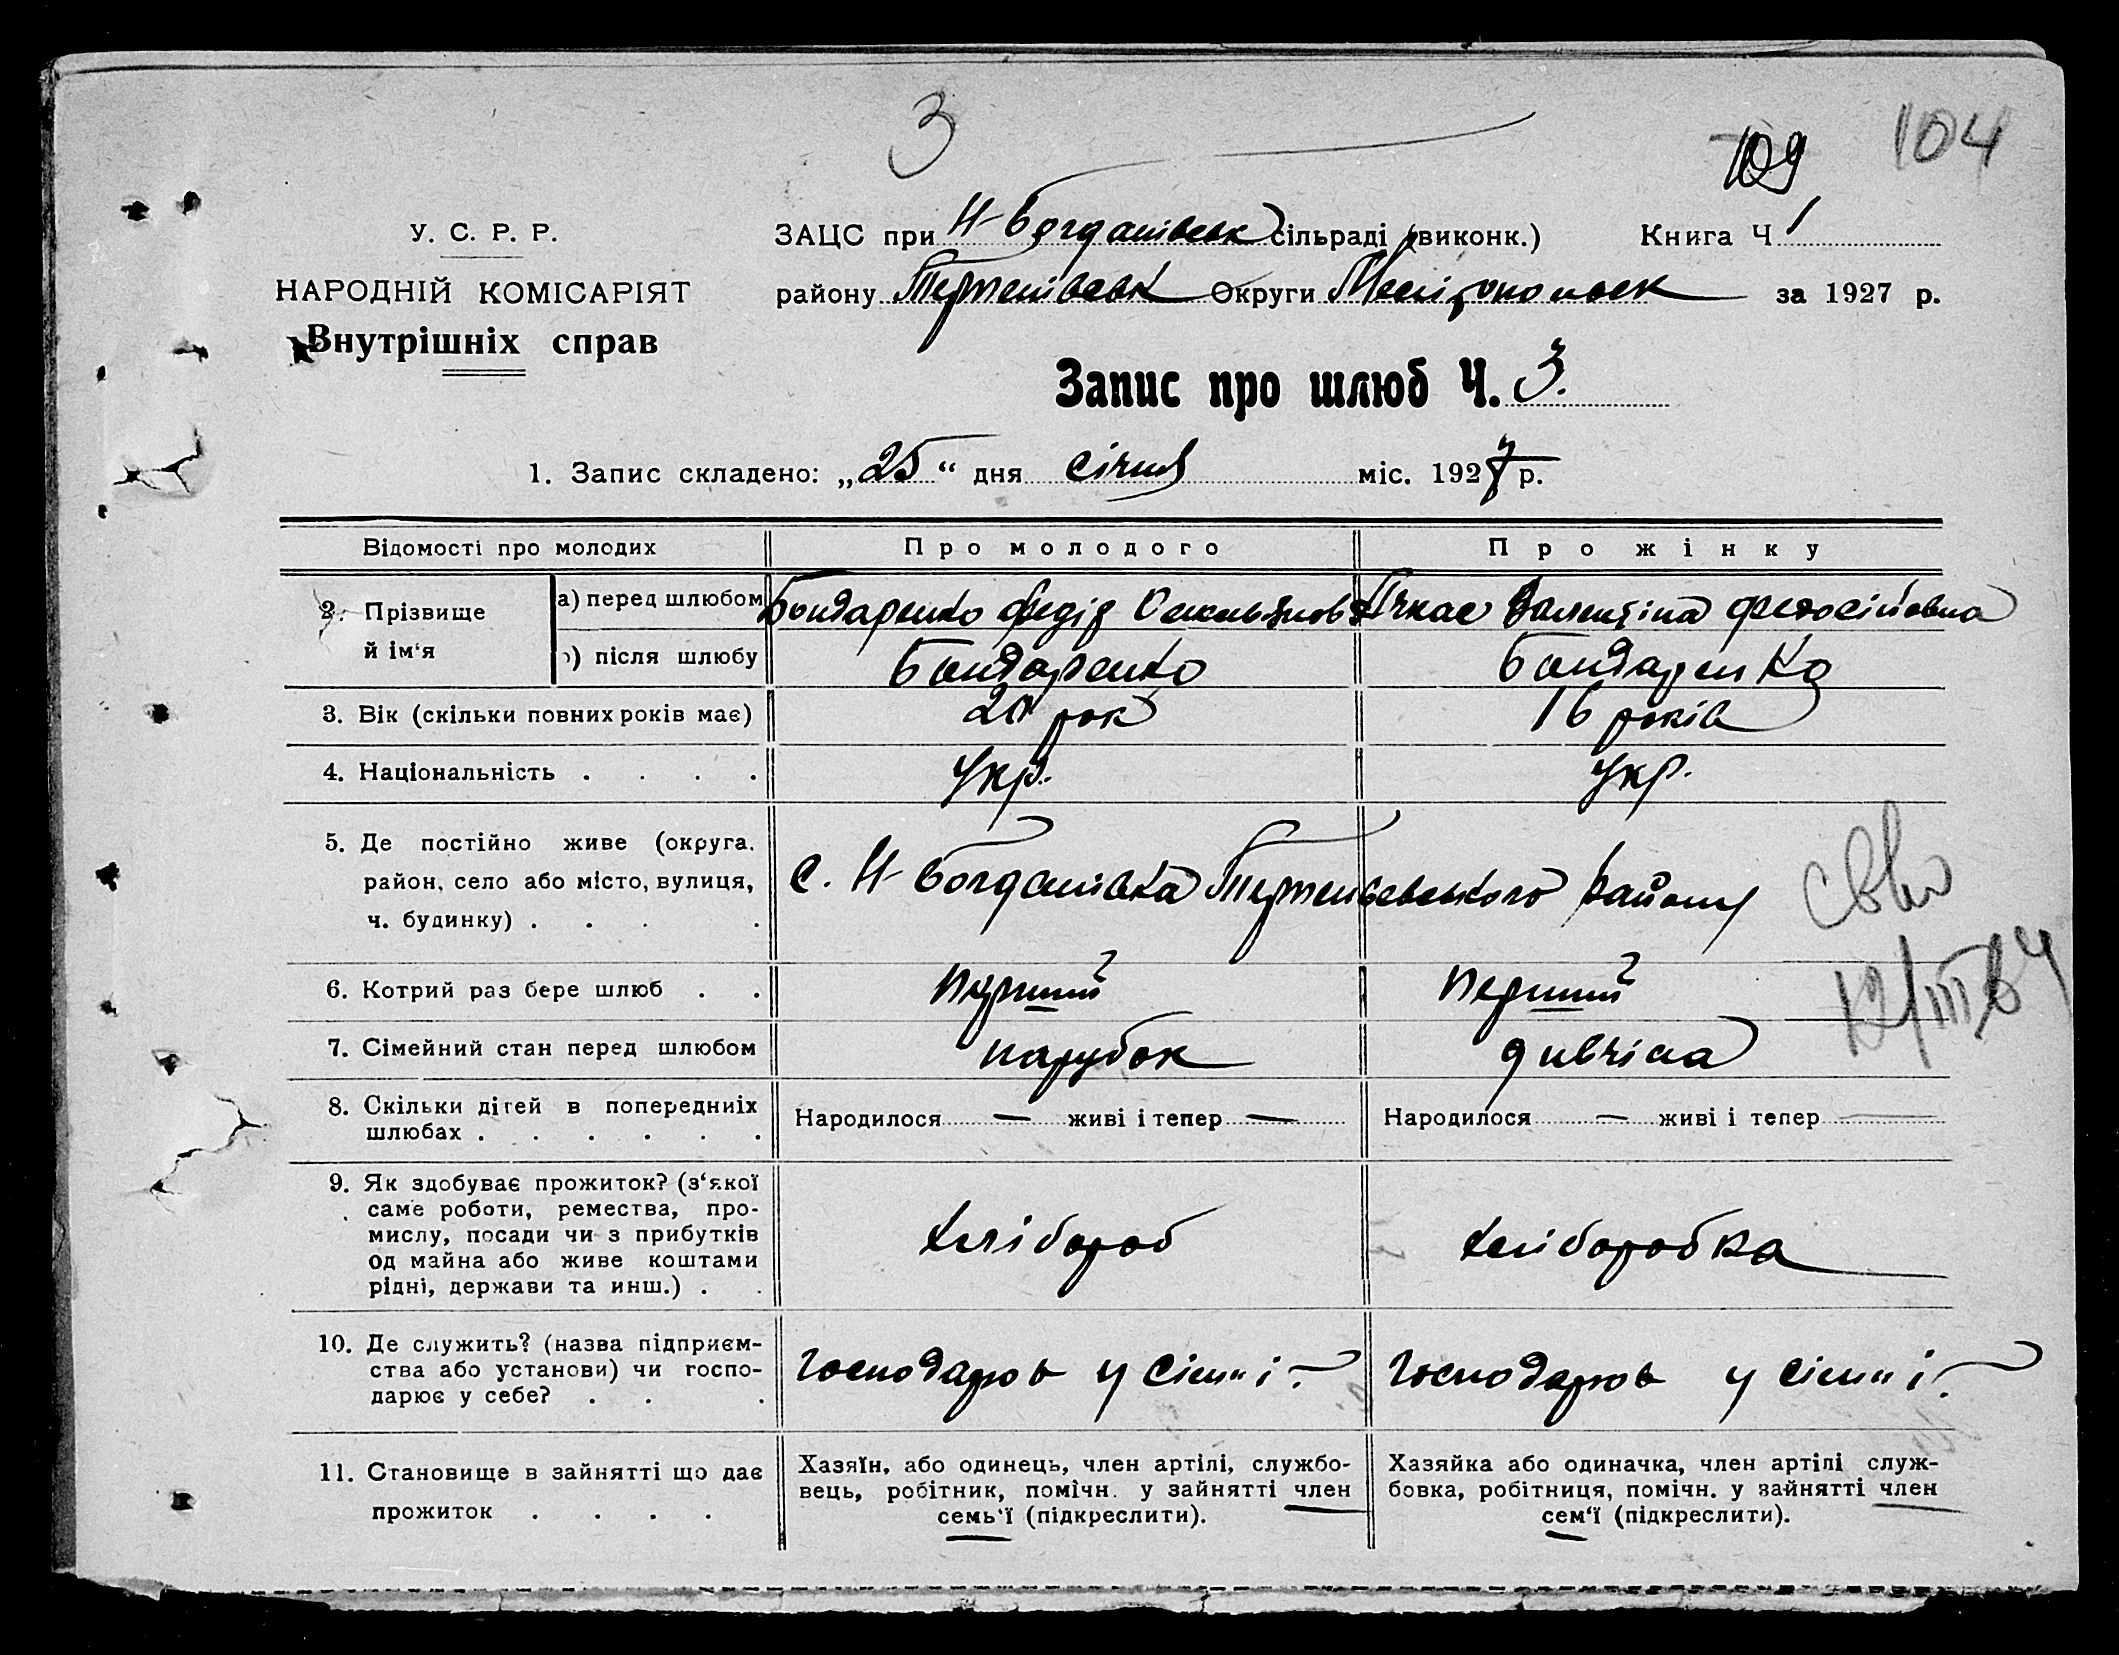 3
109 104
У. С. Р. Р.
НАРОДНІЙ КОМІСАРІЯТ
Внутрішніх справ
ЗАЦС при Н-Богданівськ сільраді (виконк.) Книга Ч 1
району Терпенівськ Округи Мелітопольск за 1927 р.
Запис про шлюб Ч. 3.
1. Запис складено: „25“ дня січня міс. 1927 р.
Відомості про молодих Про молодого Про жінку
2. Прізвище й ім‘я
а) перед шлюбом Бондаренко Федір Валентіна Федосійовна
б) після шлюбу Бондаренко Бондаренко
3. Вік (скільки повних років має) рок 16 років
4. Національність . . . . Укр. Укр.
5. Де постійно живе (округа,
район, село або місто, вулиця,
ч. будинку) . . . .
с. Н-Богданівка Терпеньєвського району
12/III 64
6. Котрий раз бере шлюб . . перший перший
7. Сімейний стан перед шлюбом парубок дивчіна
8. Скільки дітей в попередниіх
шлюбах . . . . . .
Народилося — живі і тепер — Народилося — живі і тепер —
9. Як здобуває прожиток? (з‘якої
саме роботи, ремества, про-
мислу, посади чи з прибутків
од майна або живе коштами
рідні, держави та инш.) . .
хлібороб хліборобка
10. Де служить? (назва підприєм-
ства або установи) чи госпо-
дарює у себе? . . .
господарює у сімні. господарює у сімні.
11. Становище в зайнятті що дає
прожиток . . . .
Хазяїн, або одинець, член артілі, службо-
вець, робітник, помічн. у зайнятті член
семь‘ї (підкреслити).
Хазяйка або одиначка, член артілі служ-
бовка, робітниця, помічн. у зайнятті член
сем‘ї (підкреслити).